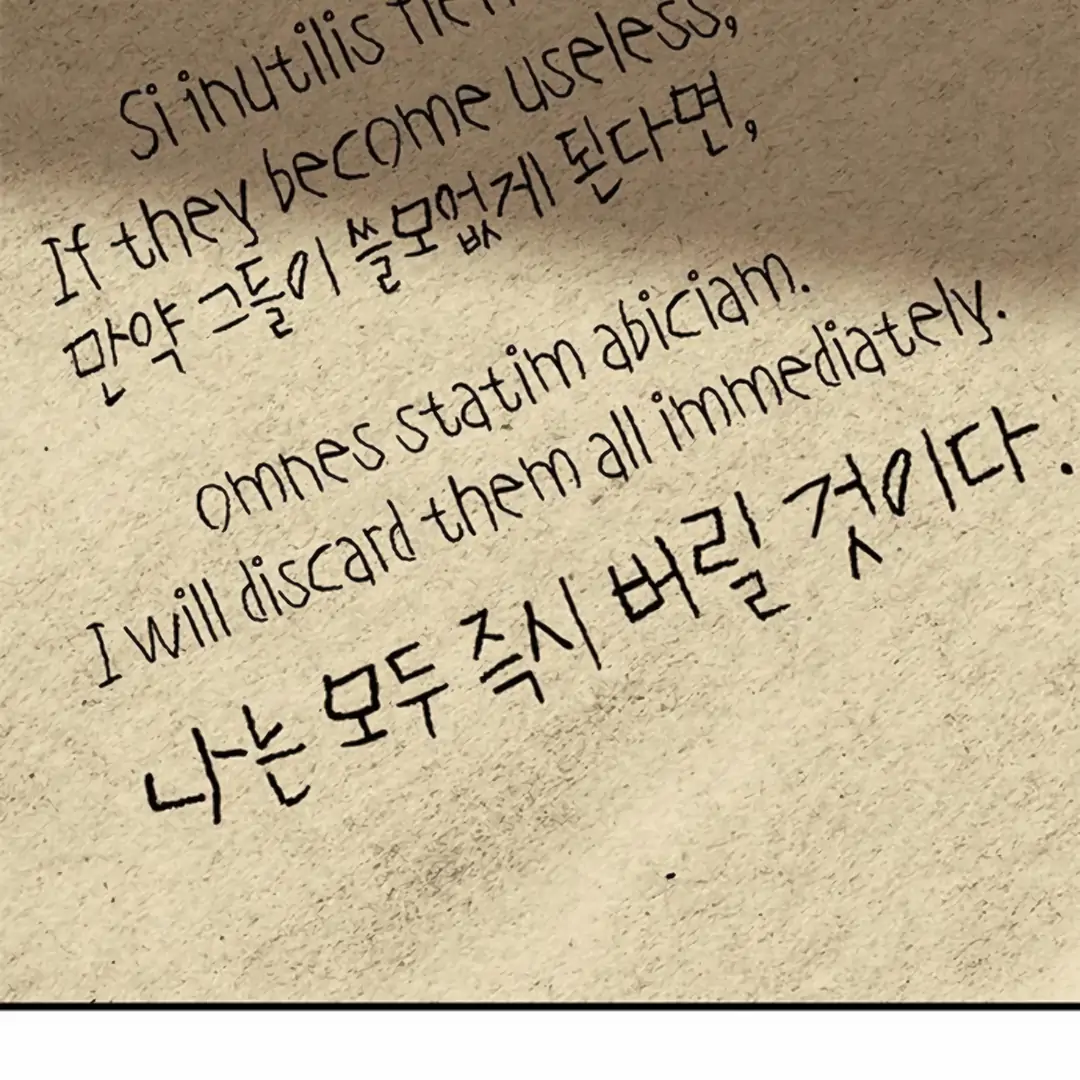 Si inutilis
If they become useless,
만약 그들이 쓸모없게 된다면,
omnes statim abiciam.
I will discard them all immediately.
나는 모두 즉시 버릴 것이다.